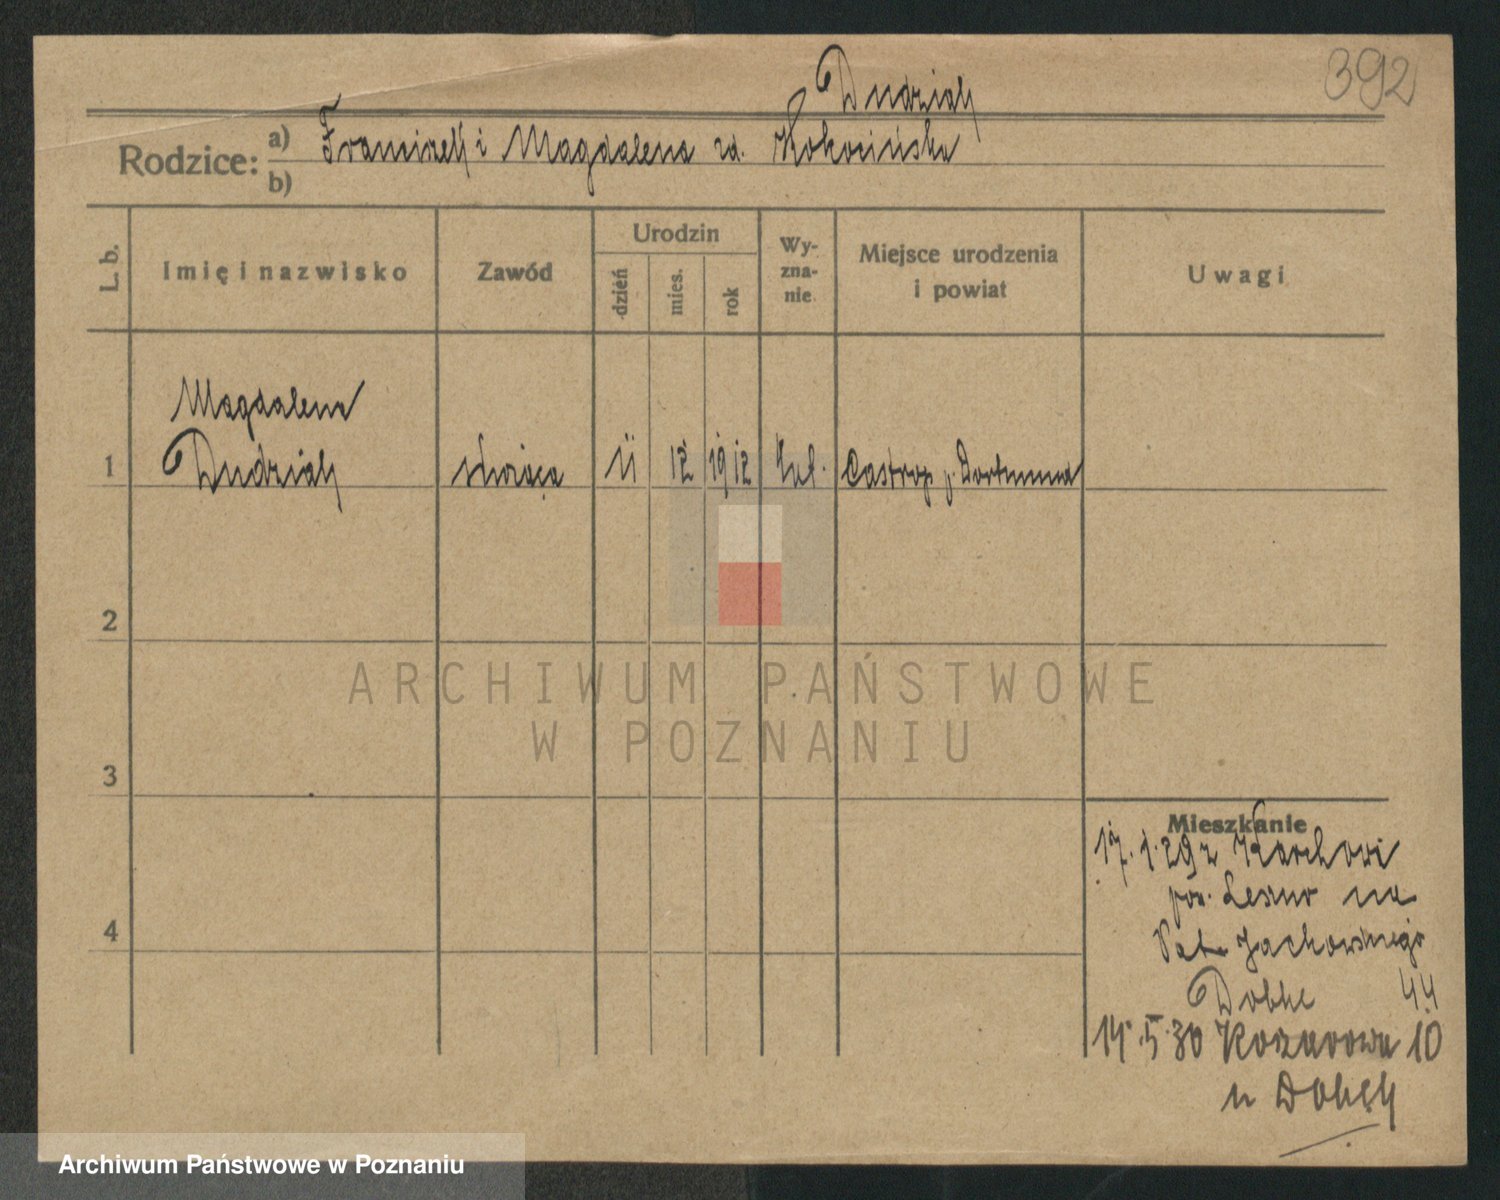 392
Dudziak
Rodzice: a) Franciszek i Magdalena zd. Kokocińska
b)
L. b.
Imię i nazwisko
Zawód
Urodzin
dzień
mies.
rok
Wy-
zna-
nie
Miejsce urodzenia
i powiat
Uwagi
Magdalena
1 Dudziak służąca 11 12 1912 kat. Castrop p. Dortmund
2
3
4
Mieszkanie
17. 1. 29 z
pow. Leszno na
44
14. 5. 30 10
u
ARCHIWUM PAŃSTWOWE
W POZNANIU
Archiwum Państwowe w Poznaniu